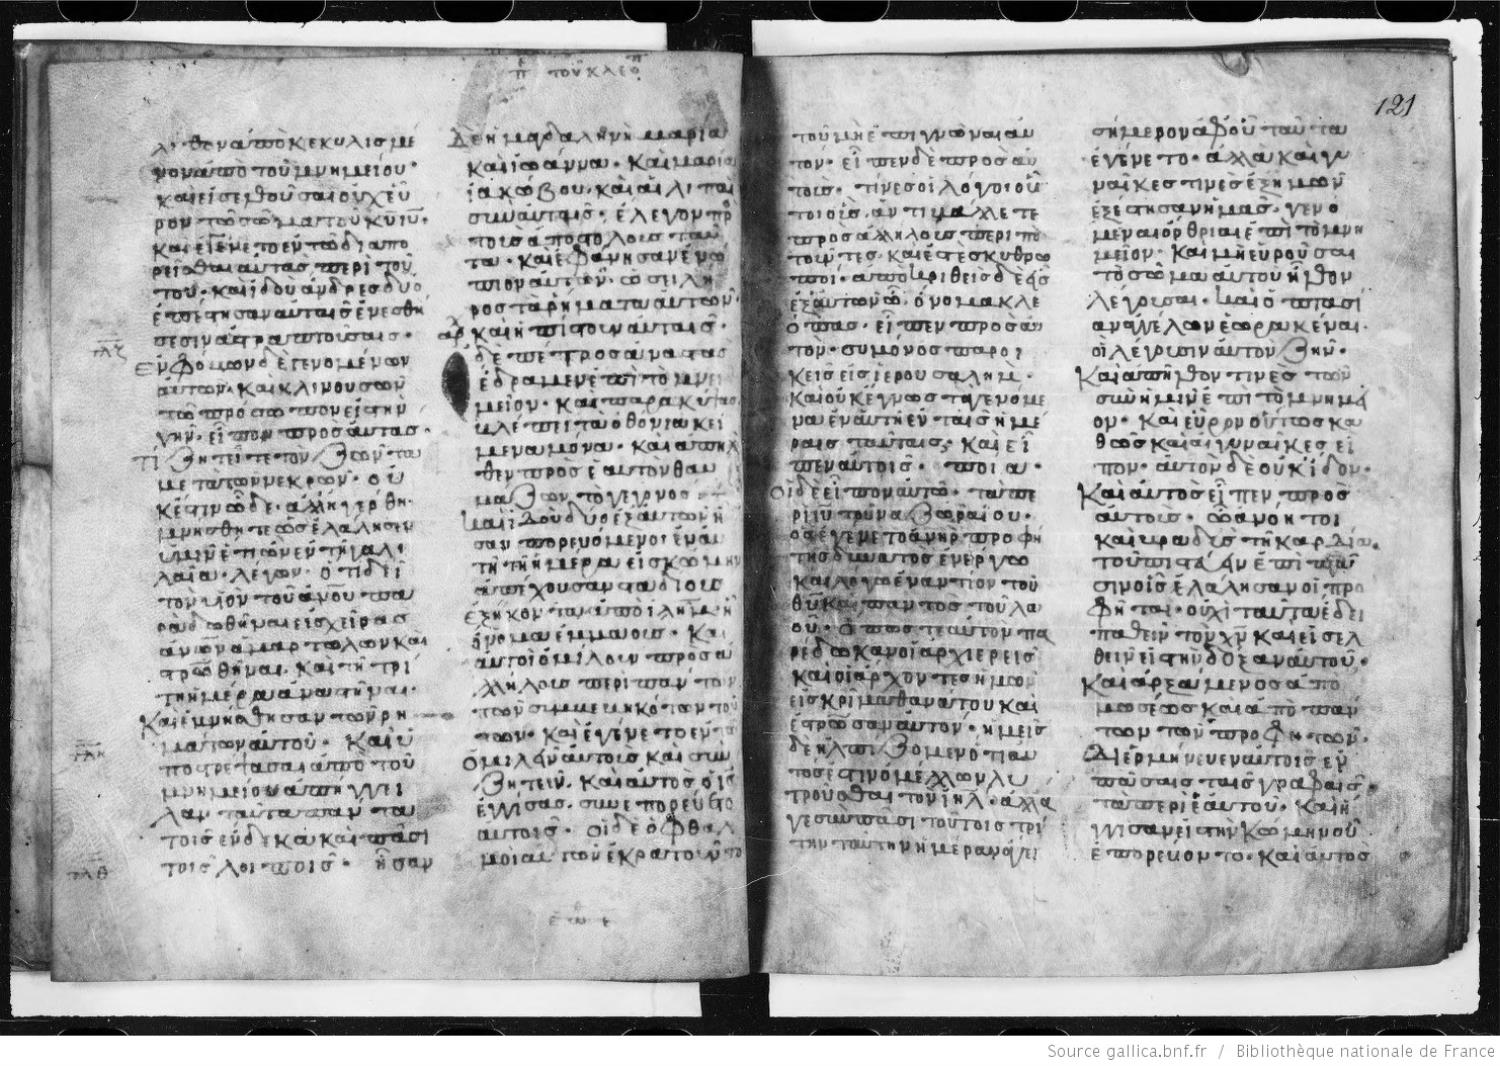 π τοῦ κλεο
λίθον ἀποκεκυλισμέ
νον ἀπὸ τοῦ μνημείου·
καὶ εἰσελθοῦσαι οὐχ εὗ
ρον τὸ σῶμα τοῦ κυ ιυ·
καὶ ἐγένετο ἐν τῶ διαπο
ρεῖσθαι αὐτὰς περὶ τού
του· καὶ ἰδοὺ ἄνδρες δύο
ἐπέστησαν αὐταῖς ἐν ἐσθή
σεσιν ἀστραπτούσαις·
τλζ
ἐμφόβων δὲ γενομένων
αὐτῶν· καὶ κλινουσῶν
τὸ πρόσωπον εἰς τὴν
γῆν· εἶπον πρὸς αὐτάς·
τί ζητεῖτε τὸν ζῶντα
μετὰ τῶν νεκρῶν· οὐ
κέστιν ὧδε· ἀλλ' ἠγέρθη·
μνήσθητε ὡς ἐλάλησεν
ὑμῖν ἔτι ὢν ἐν τῆ γαλι
λαία· λέγων· ὅτι δεῖ
τὸν υἱὸν τοῦ ανου πα
ραδοθῆναι εἰς χεῖρας
ανων ἁμαρτωλῶν καὶ
στρωθῆναι· καὶ τῆ τρί
τη ἡμέρα ἀναστῆναι·
Καὶ ἐμνήσθησαν τῶν ρη
μάτων αὐτοῦ· Καὶ ὑ
τλη
ποστρέψασαι ἀπὸ τοῦ
μνημείου ἀπήγγει
λαν ταῦτα πάντα
τοῖς ἕνδεκα καὶ πᾶσι
τλθ
τοῖς λοιποῖς· ἦσαν
δὲ ἡ μαγδαληνὴ μαρία
καὶ ἰωάννα· καὶ μαρία
ἰακώβου· καὶ αἱ λοιπαὶ
σὺν αὐταῖς· ἔλεγον πρὸ
τοὺς ἀποστόλους ταῦ
τα· καὶ ἐφάνησαν ἐνώ
πιον αὐτῶν· ὡσεὶ λῆ
ρος τὰ ρήματα αὐτῶν·
καὶ ἠπίστουν αὐταῖς·
δὲ πέτρος ἀναστὰς
ἔδραμεν ἐπὶ τὸ μνη
μεῖον· καὶ παρακύψας
βλέπει τὰ ὀθόνια κεί
μενα μόνα· καὶ ἀπῆλ
θεν πρὸς ἑαυτὸν θαυ
μάζων τὸ γεγονὸς
καὶ ἰδοὺ δύο ἐξ αὐτῶν ἦ
σαν πορευόμενοι ἐν αὐ
τῆ τῆ ἡμέρα εἰς κώμην
ἀπέχουσαν σταδίους
ἑξήκοντα ἀπὸ ιλημ· ἧ
ὄνομα ἐμμαούς· Καὶ
αὐτοὶ ὡμίλουν πρὸς ἀ
λλήλους περὶ πάντων
τῶν συμβεβηκότων τού
των· Καὶ ἐγένετο ἐν τῶ
ὁμιλεῖν αὐτοὺς καὶ συν
ζητεῖν· Καὶ αὐτὸς ὁ ις
ἐγγίσας· συνεπορεύετο
αὐτοῖς· οἱ δὲ ὀφθαλ
μοὶ αὐτῶν ἐκρατοῦντο
121
τοῦ μὴ ἐπιγνῶναι αὐ
τόν· εἶπεν δὲ πρὸς αὐ
τούς· τίνες οἱ λόγοι οὗ
τοι οὓς ἀντιβάλλετε
πρὸς ἀλλήλους περιπα
τοῦντες· καί ἐστε σκυθρω
ποί· ἀποκριθεὶς δὲ εἷς
ἐξ αὐτῶν ὧ ὄνομα κλε
όπας· εἶπεν πρὸς αὐ
τόν· σὺ μόνος παροι
κεῖς εἰς ἱερουσαλήμ·
Καὶ οὐκ ἔγνως τὰ γενόμε
να ἐν αὐτῆ ἐν ταῖς ἡμέ
ραις ταύταις· Καὶ εἶ
πεν αὐτοῖς· ποῖα·
οἱ δὲ εἶπον αὐτῶ· τὰ πε
ρὶ ιυ τοῦ ναζωραίου·
ὃς ἐγένετο ἀνὴρ προφή
της δυνατὸς ἐν ἔργω
καὶ λόγω ἐναντίον τοῦ
θυ καὶ παντὸς τοῦ λα
οῦ· ὅπως τε αὐτὸν πα
ρέδωκαν οἱ ἀρχιερεῖς
καὶ οἱ ἄρχοντες ἡμῶν
εἰς κρίμα θανάτου καὶ
ἐστρωσαν αὐτόν· ἡμεῖς
δὲ ἠλπίζομεν ὅτι αὐ
τός ἐστιν ὁ μέλλων λυ
τροῦσθαι τὸν ιηλ· ἀλλά
γε σὺν πᾶσι τούτοις τρί
την ταύτην ἡμέραν ἄγει
σήμερον ἀφ' οὗ ταῦτα
ἐγένετο· ἀλλὰ καὶ γυ
ναῖκές τινες ἐξ ἡμῶν
ἐξέστησαν ἡμᾶς· γενό
μεναι ὄρθριαι ἐπὶ τὸ μνη
μεῖον· Καὶ μὴ εὑροῦσαι
τὸ σῶμα αὐτοῦ ἦλθον
λέγουσαι· καὶ ὀπτασί
αν ἀγγέλων ἑωρακέναι·
οἳ λέγουσιν αὐτὸν ζῆν·
Καὶ ἀπῆλθόν τινες τῶν
σὺν ἡμῖν ἐπὶ τὸ μνημεῖ
ον· Καὶ εὗρον οὕτως κα
θὼς καὶ αἱ γυναῖκες εἶ
πον· αὐτὸν δὲ οὐκ ἴδον·
Καὶ αὐτὸς εἶπεν πρὸς
αὐτούς· ὦ ἀνόητοι
καὶ βραδεῖς τῆ καρδία·
τοῦ πιστεύειν ἐπὶ πᾶ
σιν οἷς ἐλάλησαν οἱ προ
φῆται· οὐχὶ ταῦτα ἔδει
παθεῖν τὸν χν καὶ εἰσελ
θεῖν εἰς τὴν δόξαν αὐτοῦ·
Καὶ ἀρξάμενος ἀπὸ
μωσέως καὶ ἀπὸ πάν
των τῶν προφητῶν·
Διερμήνευεν αὐτοῖς ἐν
πάσαις ταῖς γραφαῖς·
τὰ περὶ ἑαυτοῦ· Καὶ ἤ
γγισαν εἰς τὴν κώμην οὗ
ἐπορεύοντο· καὶ αὐτὸς
Source gallica.bnf.fr / Bibliothèque nationale de France